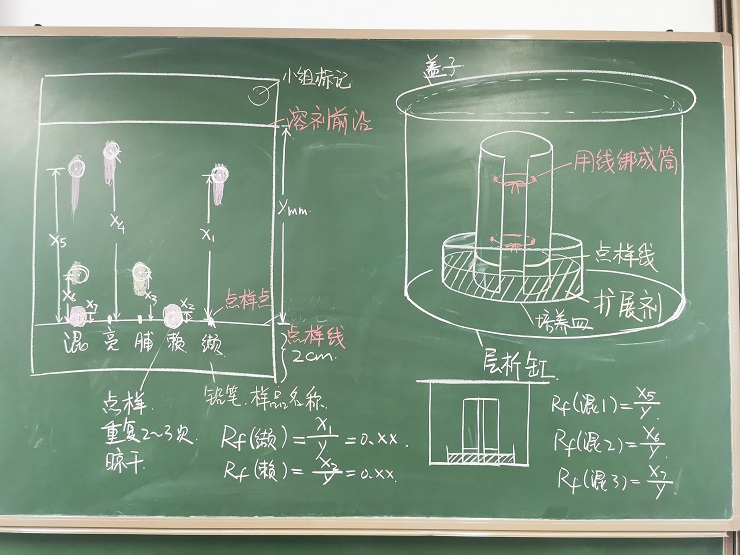 小组标记
溶剂前沿
X5
X4
X1
ymm.
X6
X7
X3
X2
点样点
混 亮 脯 赖 缬
点样线
2cm.
点样.
重复2~3次
晾干
铅笔.样品名称.
Rf(缬)=X1/y=0.xx
Rf(赖)=X2/y=0.xx.
盖子
用线绑成筒
点样线
扩展剂
培养皿
层析缸
Rf(混1)=X5/y.
Rf(混2)=X6/y.
Rf(混3)=X7/y.